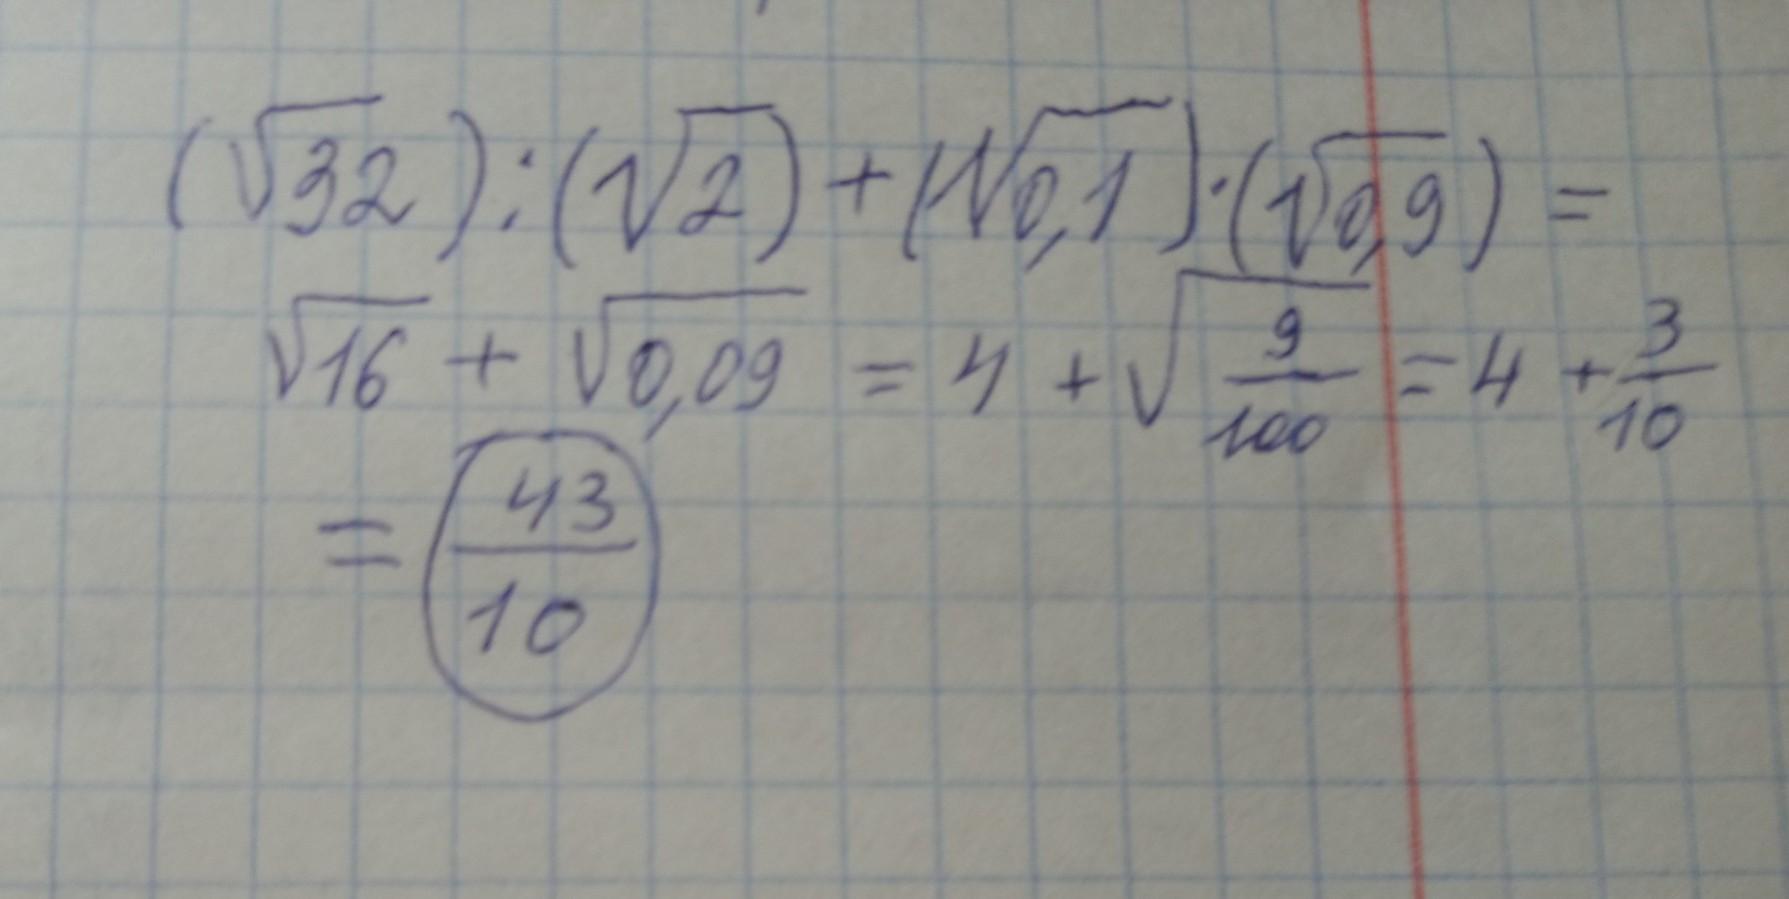 (√32):(√2)+(√0,1)·(√0,9)=
√16 + √0,09 = 4 + √(9/100) = 4 + 3/10
= 43/10